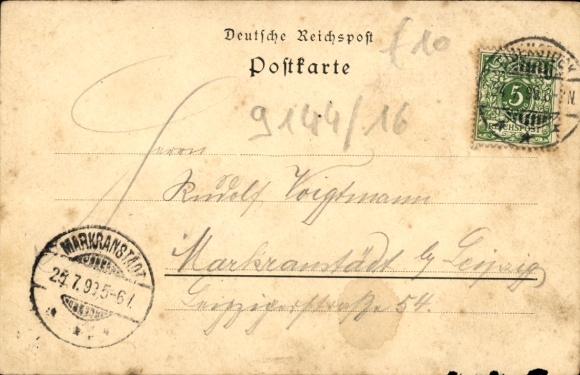 Deutsche Reichspost
Postkarte
£10
9144/16
5
REICHSPOST
Herrn
Rudolf Voigtmann
Markranstädt b/ Leipzig
Leipzigerstraße 54.
MARKRANSTÄDT